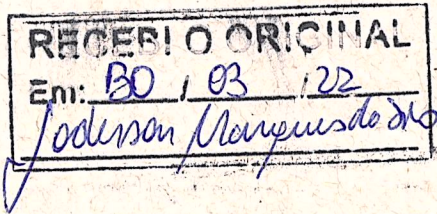 RECEBI O ORIGINAL
Em: 30 / 03 / 22
Joderson Marques da Silva